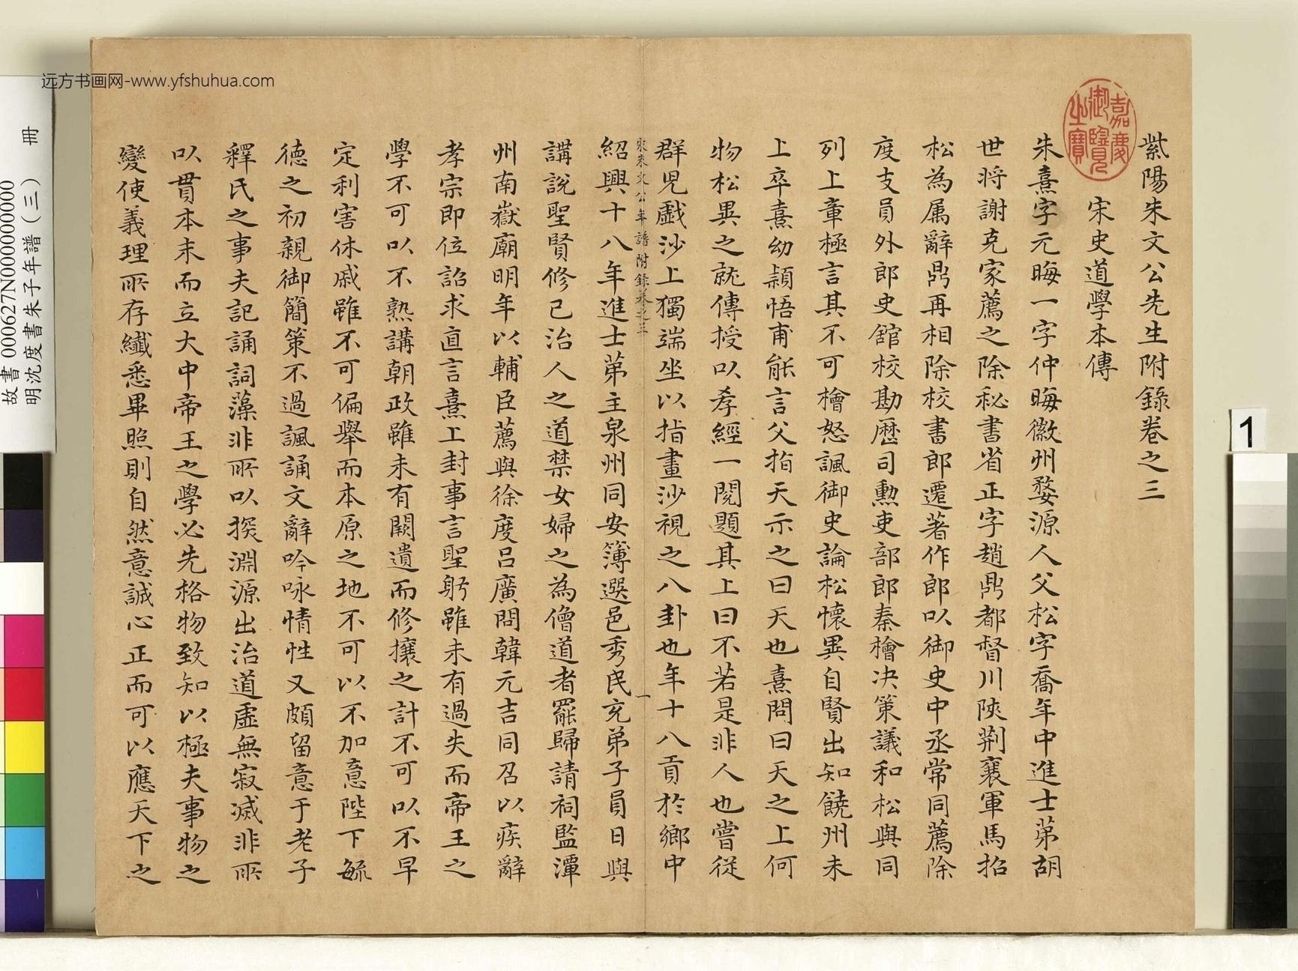 紫陽朱文公先生附錄卷之三
宋史道學本傳
朱熹字元晦一字仲晦徽州婺源人父松字喬年中進士第胡
世将謝克家薦之除秘書省正字趙鼎都督川陝荆襄軍馬招
松為属辭鼎再相除校書郎遷著作郎以御史中丞常同薦除
度支員外郎史館校勘歴司勳吏部郎秦檜决策議和松與同
列上章極言其不可檜怒諷御史論松懐異自賢出知饒州未
上卒熹幼穎悟甫能言父指天示之曰天也熹問曰天之上何
物松異之就傳授以孝經一閱題其上曰不若是非人也嘗従
群児戲沙上獨端坐以指畫沙視之八卦也年十八貢於鄉中
宋朱文公年譜附錄卷之三
一
紹興十八年進士第主泉州同安簿選邑秀民充弟子員日與
講說聖賢修己治人之道禁女婦之為僧道者罷歸請祠監潭
州南嶽廟明年以輔臣薦與徐度呂廣問韓元吉同召以疾辭
孝宗即位詔求直言熹上封事言聖躬雖未有過失而帝王之
學不可以不熟講朝政雖未有闕遺而修攘之計不可以不早
定利害休戚雖不可偏舉而本原之地不可以不加意陛下毓
德之初親御簡策不過諷誦文辭吟咏情性又頗留意于老子
釋氏之事夫記誦詞藻非所以探淵源出治道虛無寂滅非所
以貫本末而立大中帝王之學必先格物致知以極夫事物之
變使義理所存纖悉畢照則自然意誠心正而可以應天下之
嘉慶御覽之寶
远方书画网-www.yfshuhua.com
故書000627N000000000 冊
明沈度書朱子年譜(三)
1